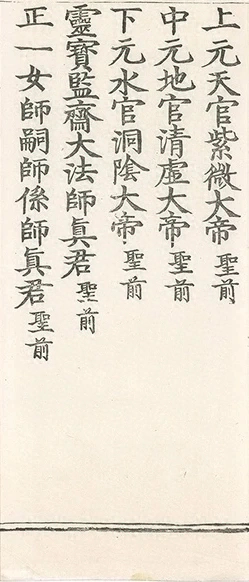 上元天官紫微大帝聖前
中元地官清虛大帝聖前
下元水官洞陰大帝聖前
靈寶監齋大法師眞君聖前
正一女師嗣師係師眞君聖前